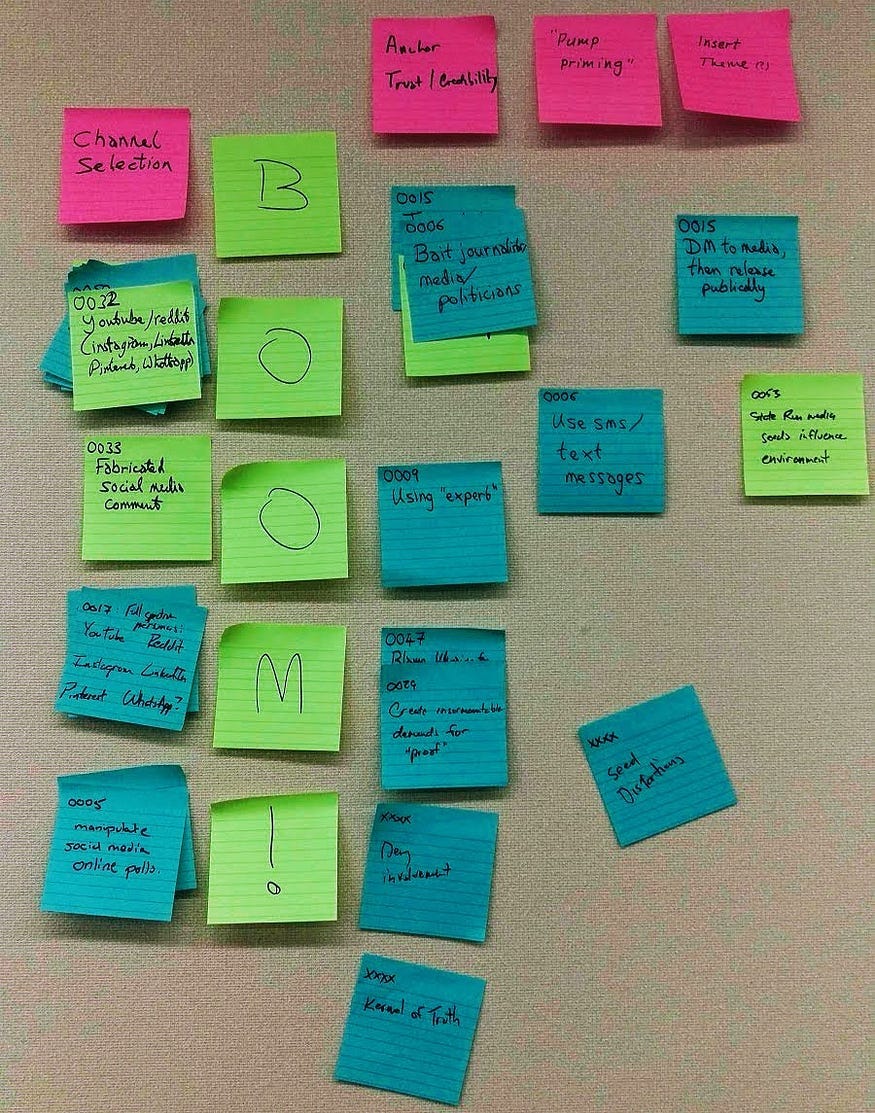 Anchor
Trust/Credibility
"Pump
priming"
Insert
Theme(?)
Channel
Selection
B
0015
0006
Bait journalists/
media/
politicians
0015
DM to media,
then release
publically
0032
Youtube/reddit
(instagram, LinkedIn
Pinterest, WhatsApp)
O
0006
Use sms/
text
messages
0053
State Run media
seeds influence
environment
0033
Fabricated
social media
comment
O
0009
Using "experts"
0017: Full spectrum
personas:
Youtube Reddit
Instagram LinkedIn
Pinterest WhatsApp?
M
0047
0029
Create insurmountable
demands for
"proof"
xxxx
seed
Distortions
0005
manipulate
social media
online polls.
!
xxxx
Deny
involvement
xxxx
Kernel of Truth